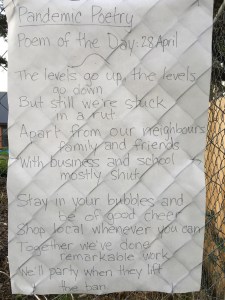 Pandemic Poetry
Poem of the Day: 28 April
The levels go up, the levels
go down
But still we're stuck
in a rut
Apart from our neighbours
family and friends
With business and school
mostly shut.
Stay in your bubbles and
be of good cheer
Shop local whenever you can
Together we've done
remarkable work
We'll party when they lift
the ban.